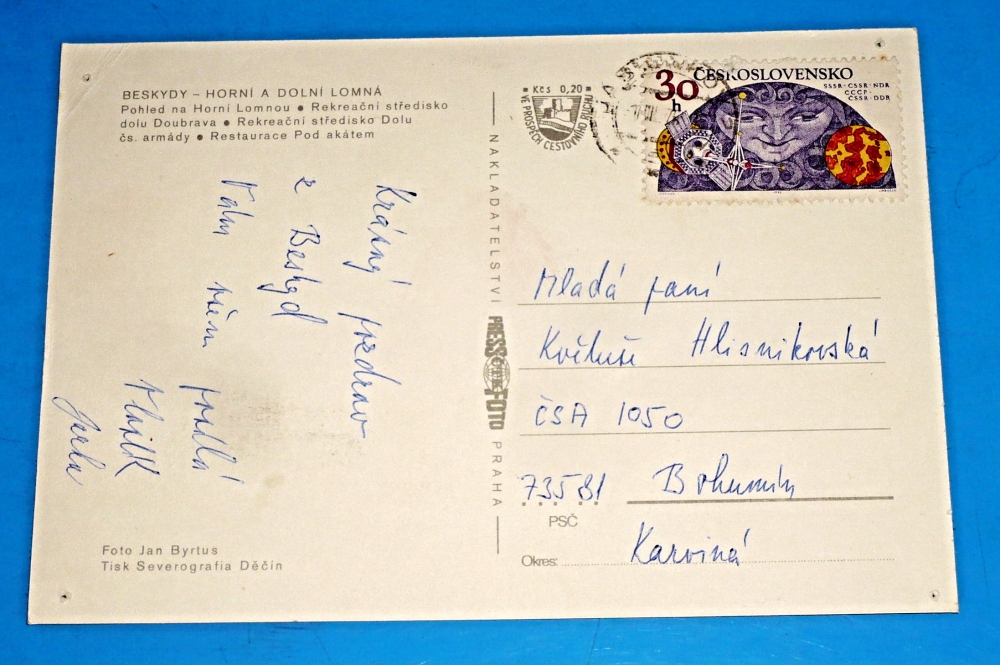 BESKYDY – HORNÍ A DOLNÍ LOMNÁ
Pohled na Horní Lomnou ● Rekreační středisko
dolu Doubrava ● Rekreační středisko Dolu
čs. armády ● Restaurace Pod akátem
Krásný pozdrav
z Beskyd
Vám všem
Jarka
Foto Jan Byrtus
Tisk Severografia Děčín
NAKLADATELSTVÍ PRESSFOTO PRAHA
Kčs 0,20
VE PROSPĚCH CESTOVNÍHO RUCHU
30 h
ČESKOSLOVENSKO
SSSR·ČSSR·NDR
СССР·
ČSSR·DDR
Mladá paní
Květuše Hlisnikovská
ČSA 1050
73581 Bohumín
PSČ
Okres: Karviná